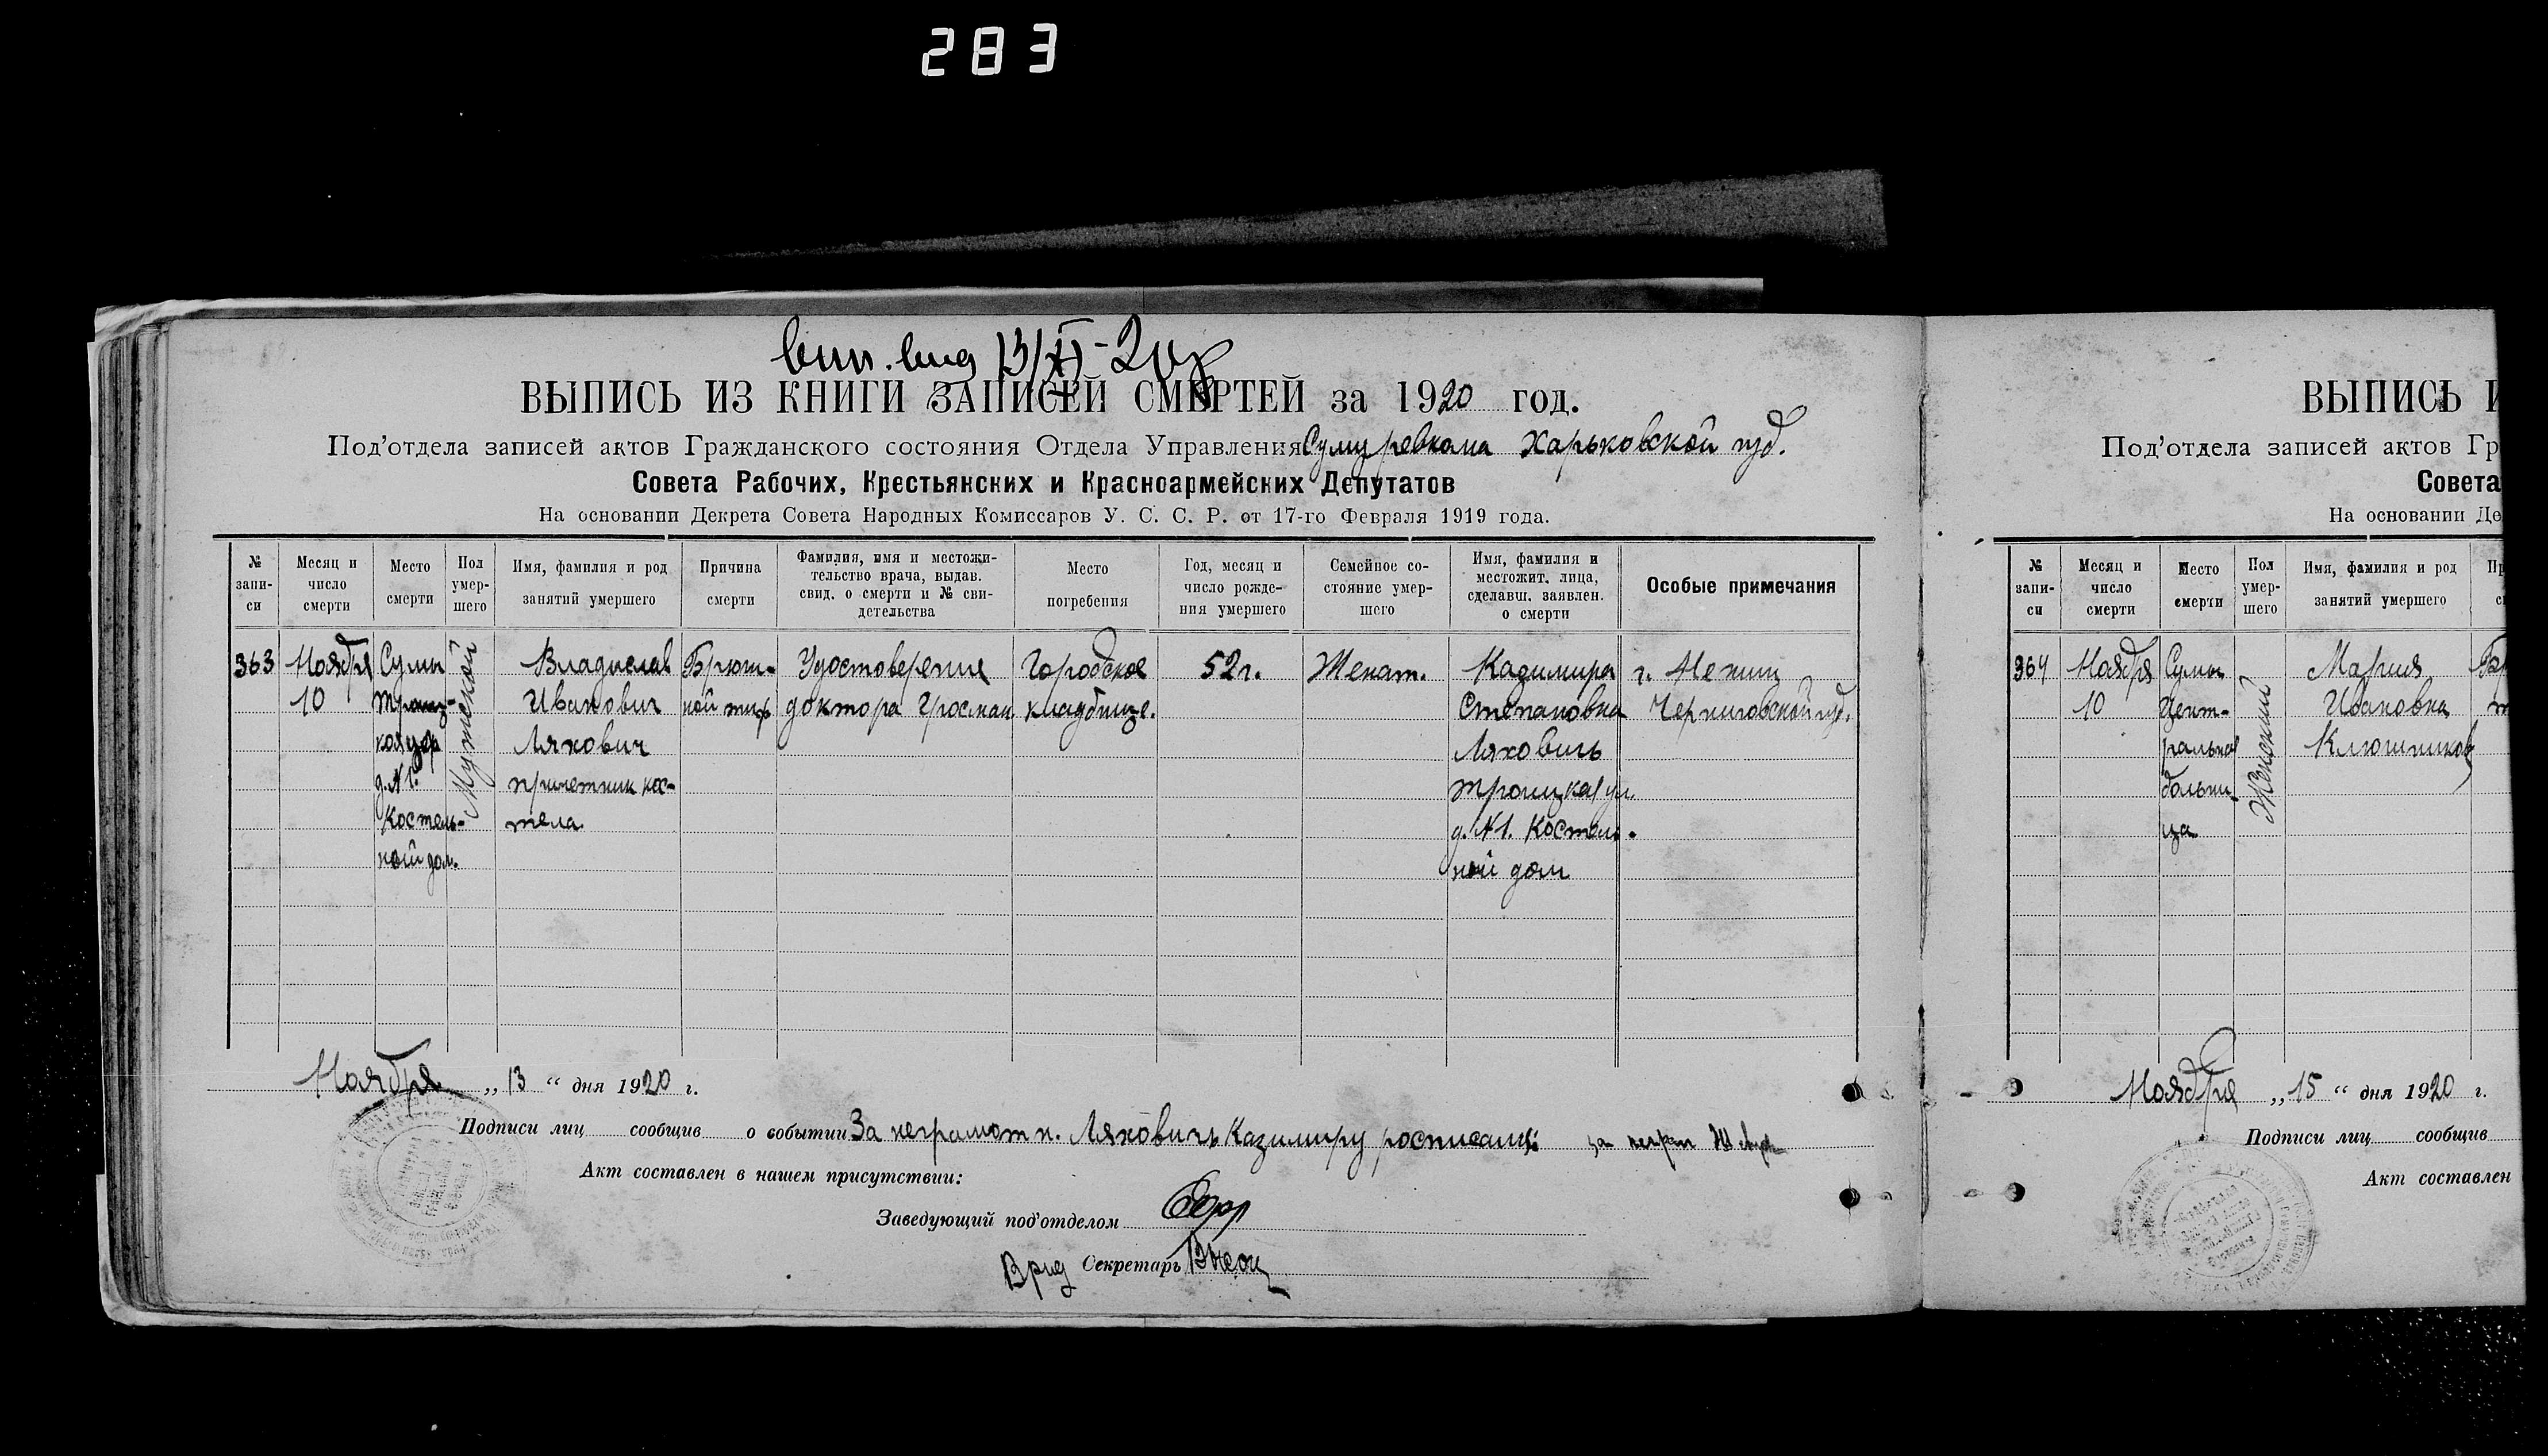 283
вып. выд 13/XI-20г
ВЫПИСЬ ИЗ КНИГИ ЗАПИСЕЙ СМЕРТЕЙ за 1920 год.
Под'отдела записей актов Гражданского состояния Отдела Управления Сум ревкома Харьковской губ.
Совета Рабочих, Крестьянских и Красноармейских Депутатов
На основании Декрета Совета Народных Комиссаров У. С. С. Р. от 17-го Февраля 1919 года.
№ запи-
си
Месяц и
число
смерти
Место
смерти
Пол
умер-
шего
Имя, фамилия и род
занятий умершего
Причина
смерти
Фамилия, имя и местожи-
тельство врача, выдав.
свид. о смерти и № сви-
детельства
Место
погребения
Год, месяц и
число рожде-
ния умершего
Семейное со-
стояние умер-
шего
Имя, фамилия и
местожит. лица,
сделавш. заявлен.
о смерти
Особые примечания
363
Ноября
10
Сумы
Троиц-
кая ул
д. №1.
Костель-
ной дом.
Мужской
Владислав
Иванович
Ляхович
причетник кос-
тела.
Брюш-
ной тиф
Удостоверение
доктора Гросман.
Городское
кладбище.
52 г.
Женат.
Казимира
Степановна
Ляховичь
Троицкая ул.
д. №1. Костель-
ной дом
г. Нежин
Черниговской губ.
Ноября „13“ дня 1920 г.
Подписи лиц сообщив о событии За неграмотн. Ляховичь Казимиру росписался:
Акт составлен в нашем присутствии:
Заведующий под'отделом
Врид Секретарь
ВЫПИСЬ И
Под'отдела записей актов Гр
Совета
На основании Де
№
запи-
си
Месяц и
число
смерти
Место
смерти
Пол
умер-
шего
Имя, фамилия и род
занятий умершего
Пр
с
364
Ноября
10
Сумы
Цент-
ральная
больни-
ца
Женский
Мария
Ивановна
Ключников
Ноября „15“ дня 1920 г.
Подписи лиц сообщив
Акт составлен